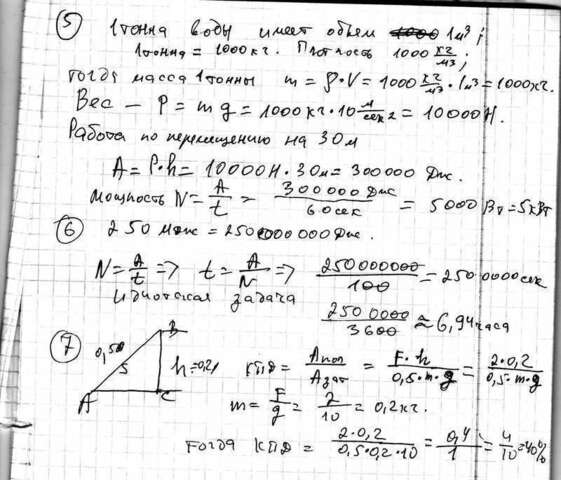 5 1 тонна воды имеет объем 1м³;
1 тонна = 1000 кг. Плотность 1000 кг/м³;
тогда масса 1 тонны m = ρ·V = 1000 кг/м³ · 1м³ = 1000кг.
Вес – P = mg = 1000кг·10 м/сек² = 10000Н.
Работа по перемещению на 30м
A = P·h = 10000Н·30м = 300000 Дж.
мощность N = A/t = 300000 Дж/60сек = 5000 Вт = 5кВт
6 250 мдж = 250000000 Дж.
N = A/t => t = A/N => 250000000/100 = 2500000сек
Идиотская задача
2500000/3600 ≈ 6,94часа
7 B
0,5 S h=0,2 КПД = Aпол/Aзат = F·h/0,5·m·g = 2·0,2/0,5·m·g
A C
m = F/g = 2/10 = 0,2кг.
Тогда КПД = 2·0,2/0,5·0,2·10 = 0,4/1 = 4/10 = 40%